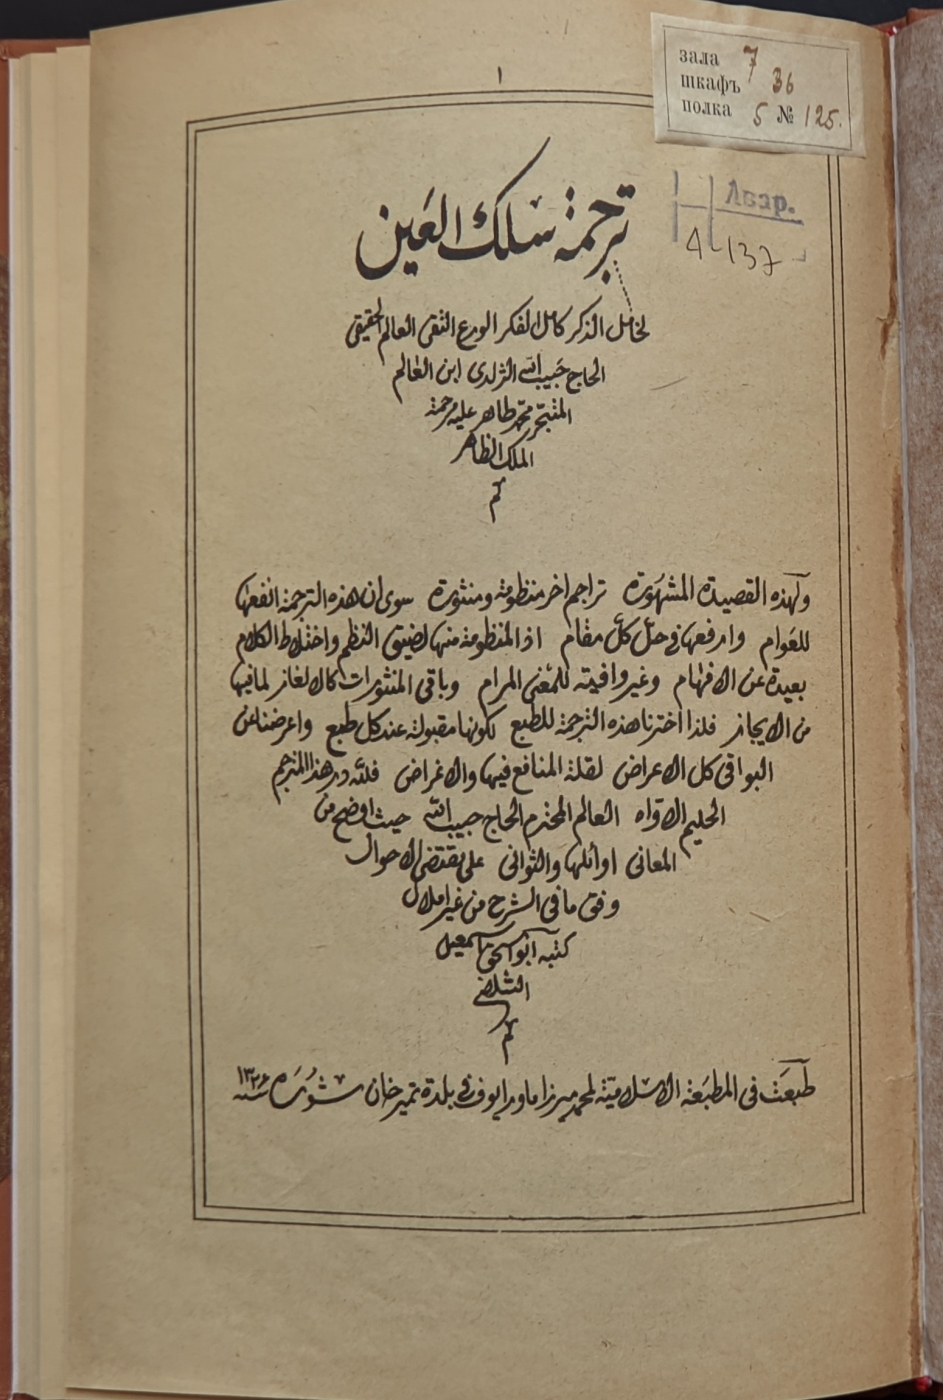 ١
зала 7
шкафъ 36
полка 5 № 125.
Авар.
4-137
ترجمة سلك العين
لخامل الذكر كامل الفكر الورع التقى العالم الحقيقى
الحاج حبيب الله الزلدى ابن العالم
المتبحّر محمّد طاهر عليه رحمة
الملك الظاهر
تم
ولهذه القصيدة المشهورة تراجم اخر منظومة ومنثورة سوى ان هذه الترجمة انفعها
للعوام وارفعها فى حلّ كلّ مقام اذ المنظومة منها لضيق النظم واختلاط الكلام
بعيدة عن الافهام وغير وافية للمعنى المرام وباقى المنثورات كالالغاز لما فيها
من الايجاز فلذا اخترنا هذه الترجمة للطبع لكونها مقبولة عند كل طبع واعرضنا عن
البواقى كل الاعراض لقلة المنافع فيها والاغراض فللّه در هذا المترجم
الحليم الاوّاه العالم المحترم الحاج حبيب الله حيث اوضح من
المعانى اوائلها والثوانى على مقتضى الاحوال
وفق ما فى الشرح من غير املال
كتبه ابو اسحق اسمعيل
الشلضى
تم
طبعت فى المطبعة الاسلامية لمحمد ميرزا ماورايوف فى بلدة تميرخان شوره سنة ١٣٢۶